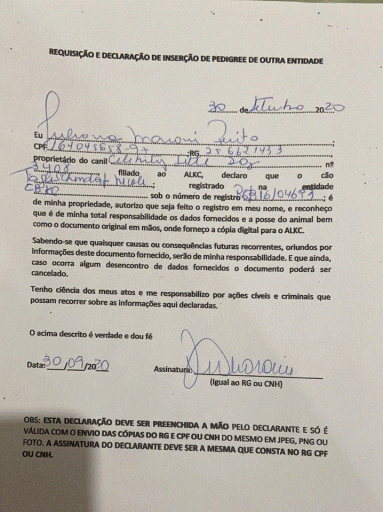 REQUISIÇÃO E DECLARAÇÃO DE INSERÇÃO DE PEDIGREE DE OUTRA ENTIDADE
30 de Setembro 2020
Eu Juliana
CPF ;RG. ;
proprietário do canil Celebrity Little Dog nº
filiado ao ALKC, declaro que o cão
; registrado na entidade
CBKC sob o número de registro ; é
de minha propriedade, autorizo que seja feito o registro em meu nome, e reconheço
que é de minha total responsabilidade os dados fornecidos e a posse do animal bem
como o documento original em mãos, onde forneço a cópia digital para o ALKC.
Sabendo-se que quaisquer causas ou consequências futuras recorrentes, oriundos por
informações deste documento fornecido, serão de minha responsabilidade. E que ainda,
caso ocorra algum desencontro de dados fornecidos o documento poderá ser
cancelado.
Tenho ciência dos meus atos e me responsabilizo por ações cíveis e criminais que
possam recorrer sobre as informações aqui declaradas.
O acima descrito é verdade e dou fé
Data: 30/09/2020 Assinatura:
(Igual ao RG ou CNH)
OBS: ESTA DECLARAÇÃO DEVE SER PREENCHIDA A MÃO PELO DECLARANTE E SÓ É
VÁLIDA COM O ENVIO DAS CÓPIAS DO RG E CPF OU CNH DO MESMO EM JPEG, PNG OU
FOTO. A ASSINATURA DO DECLARANTE DEVE SER A MESMA QUE CONSTA NO RG CPF
OU CNH.